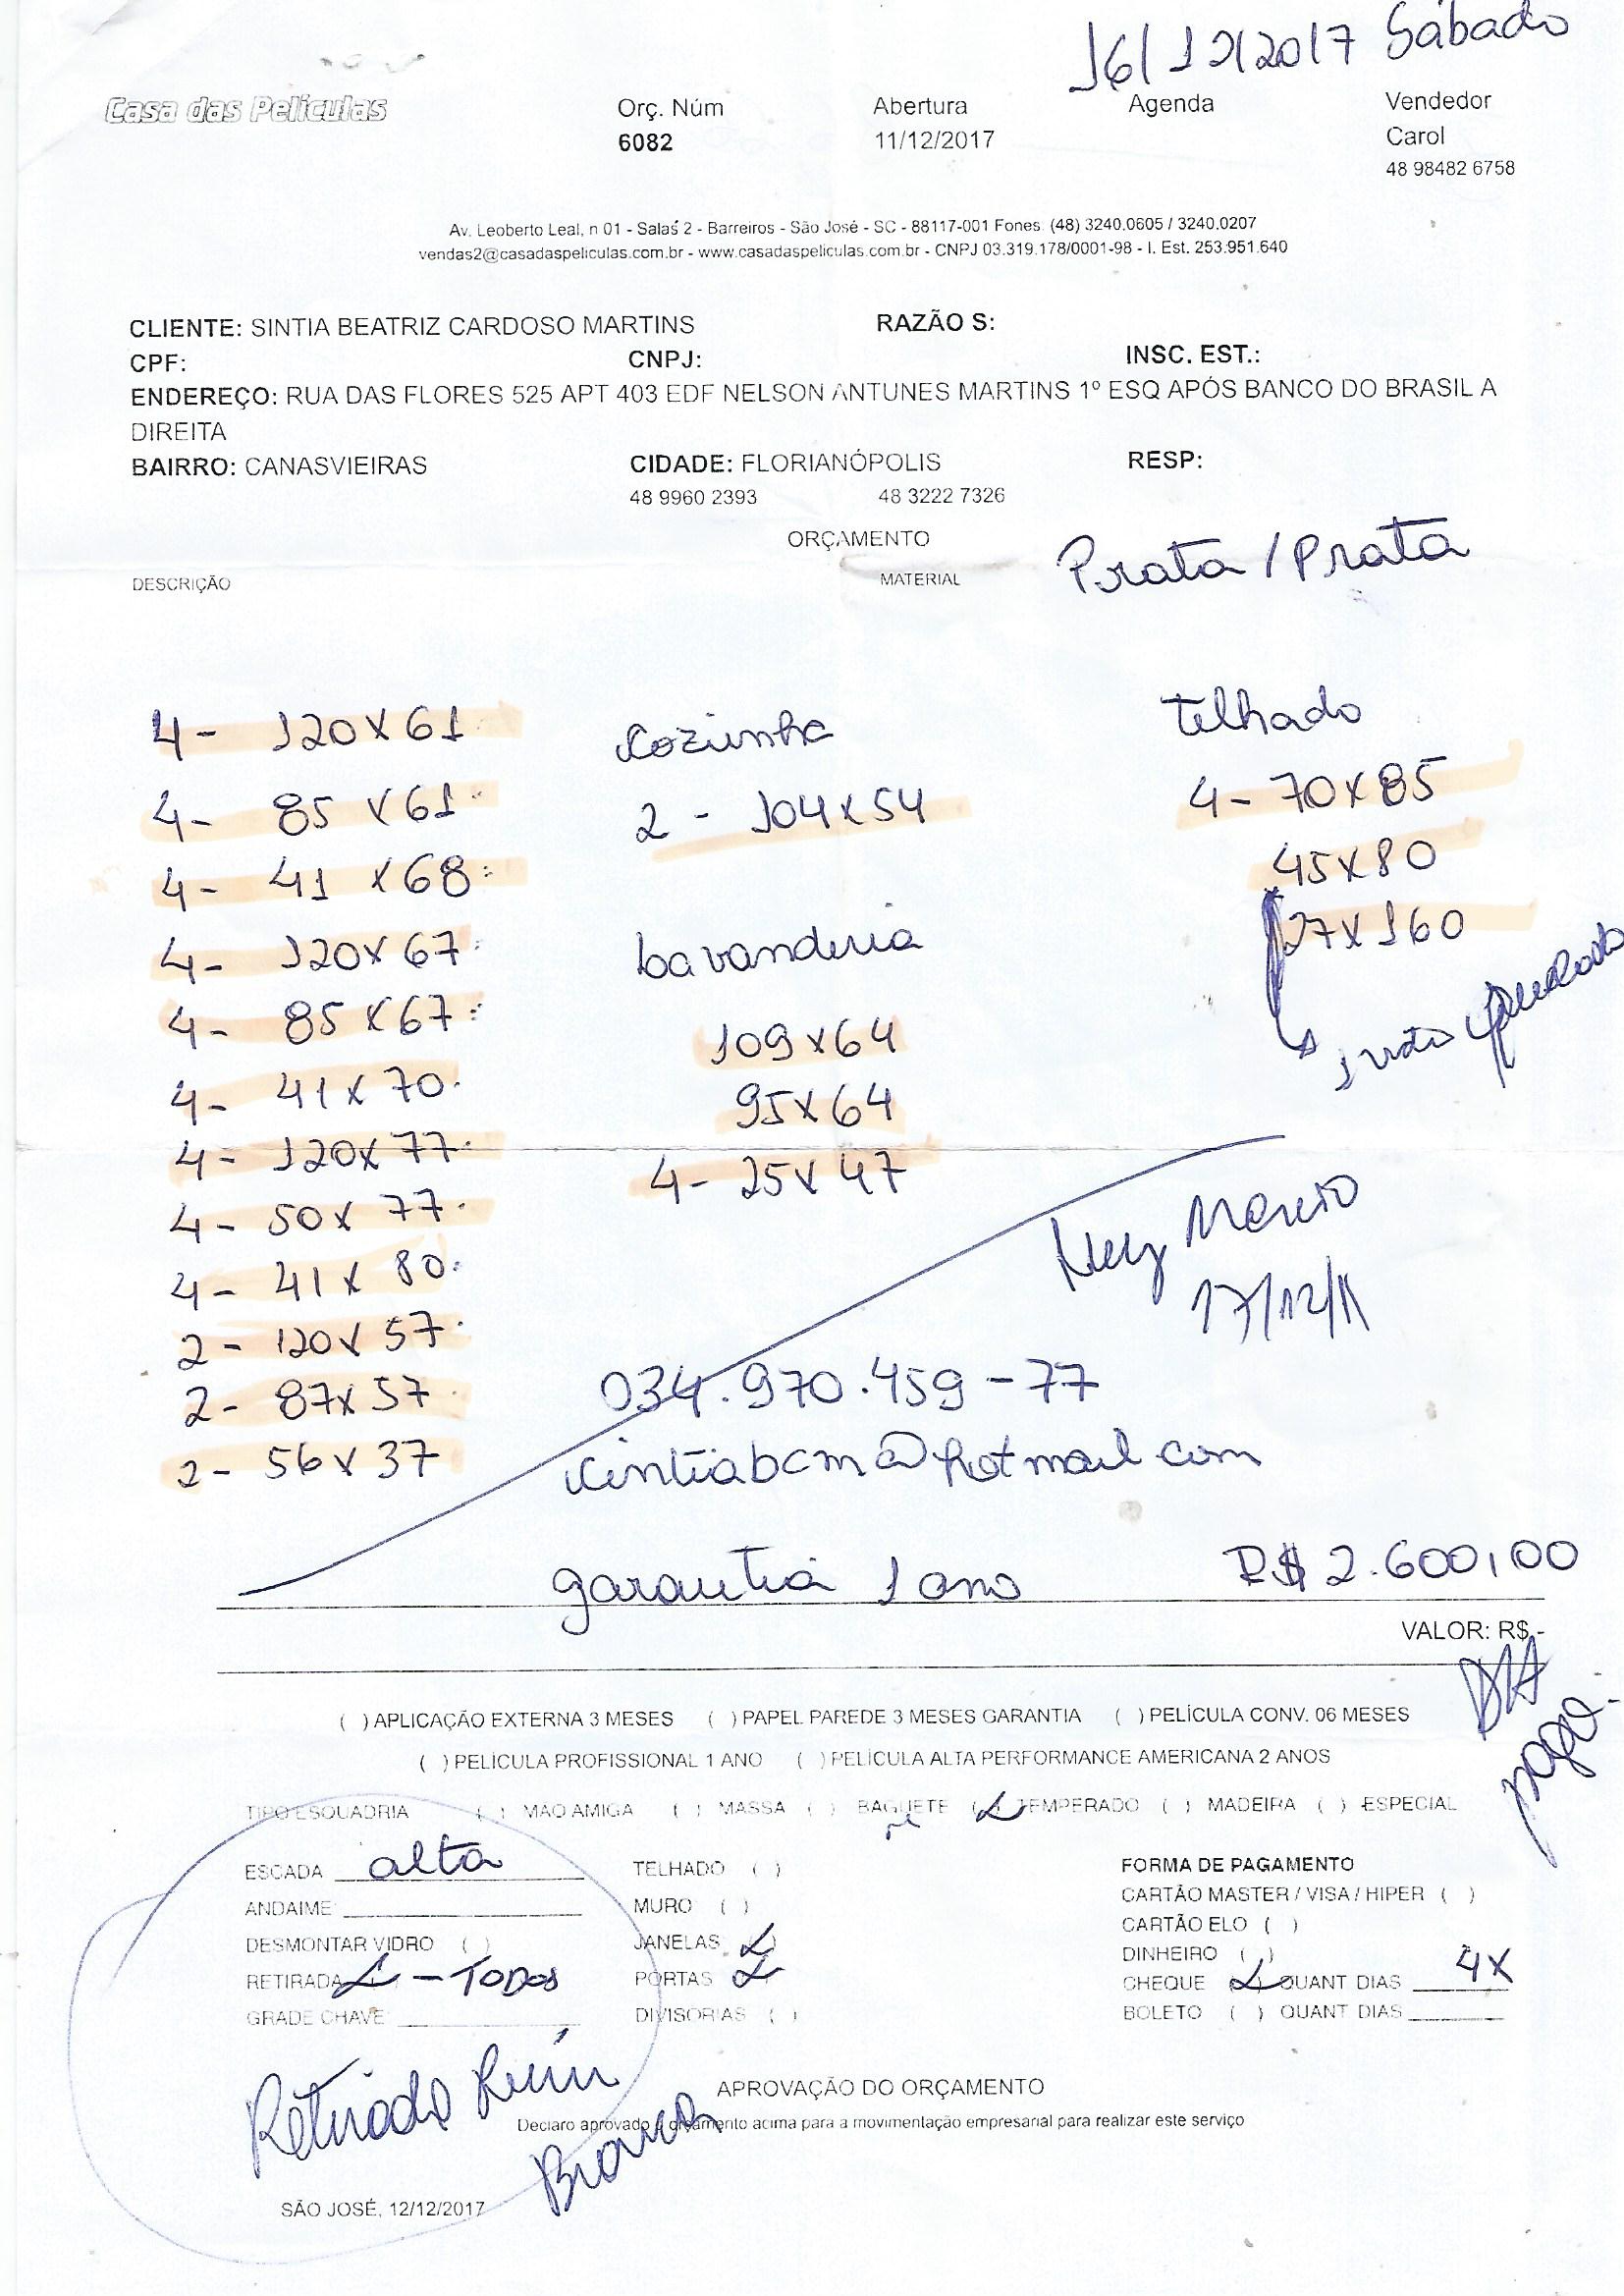 16/12/2017 Sábado
Casa das Películas
Orç. Núm Abertura Agenda Vendedor
6082 11/12/2017 Carol
48 98482 6758
Av. Leoberto Leal, n 01 - Salas 2 - Barreiros - São José - SC - 88117-001 Fones: (48) 3240.0605 / 3240.0207
vendas2@casadaspeliculas.com.br - www.casadaspeliculas.com.br - CNPJ 03.319.178/0001-98 - I. Est. 253.951.640
CLIENTE: SINTIA BEATRIZ CARDOSO MARTINS RAZÃO S:
CPF: CNPJ: INSC. EST.:
ENDEREÇO: RUA DAS FLORES 525 APT 403 EDF NELSON ANTUNES MARTINS 1º ESQ APÓS BANCO DO BRASIL A
DIREITA
BAIRRO: CANASVIEIRAS CIDADE: FLORIANÓPOLIS RESP:
48 9960 2393 48 3222 7326
ORÇAMENTO
DESCRIÇÃO MATERIAL Prata / Prata
4- 120x61 cozinha telhado
4- 85x61 2- 104x54 4- 70x85
4- 41x68 45x80
4- 120x67 lavanderia 27x160
4- 85x67 109x64
4- 41x70 95x64
4- 120x77 4- 25x47
4- 50x77
4- 41x80 17/12/
2- 120x57
2- 87x57 034.970.459-77
2- 56x37 cintiabcm@hotmail.com
garantia 1 ano R$ 2.600,00
VALOR: R$ -
( ) APLICAÇÃO EXTERNA 3 MESES ( ) PAPEL PAREDE 3 MESES GARANTIA ( ) PELÍCULA CONV. 06 MESES
( ) PELÍCULA PROFISSIONAL 1 ANO ( ) PELÍCULA ALTA PERFORMANCE AMERICANA 2 ANOS
TIPO ESQUADRIA ( ) MÃO AMIGA ( ) MASSA ( ) BAGUETE ( ) TEMPERADO ( ) MADEIRA ( ) ESPECIAL
ESCADA alta TELHADO ( ) FORMA DE PAGAMENTO
ANDAIME MURO ( ) CARTÃO MASTER / VISA / HIPER ( )
CARTÃO ELO ( )
DESMONTAR VIDRO ( ) JANELAS DINHEIRO ( )
RETIRADA - TODOS PORTAS CHEQUE QUANT DIAS 4x
GRADE CHAVE DIVISÓRIAS ( ) BOLETO ( ) QUANT DIAS
APROVAÇÃO DO ORÇAMENTO
Declaro aprovado o orçamento acima para a movimentação empresarial para realizar este serviço
SÃO JOSÉ, 12/12/2017